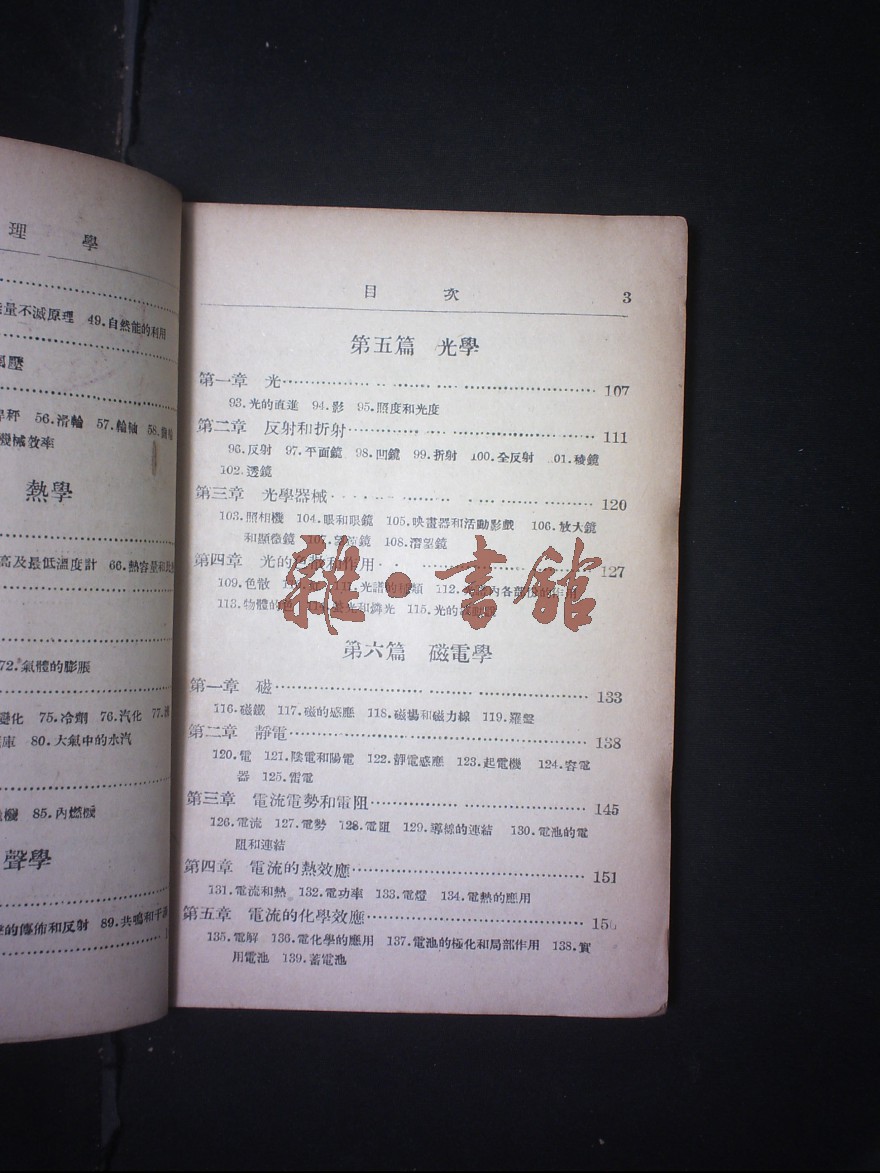 理 學
量不滅原理 49.自然能的利用
56.滑輪 57.輪軸 58.
機械效率
熱學
高及最低溫度計 66.熱容量和比
72.氣體的膨脹
變化 75.冷劑 76.汽化 77.
庫 80.大氣中的水汽
機 85.內燃機
聲學
的傳佈和反射 89.共鳴和干
目 次 3
第五篇 光學
第一章 光 107
93.光的直進 94.影 95.照度和光度
第二章 反射和折射 111
96.反射 97.平面鏡 98.凹鏡 99.折射 100.全反射 01.稜鏡
102.透鏡
第三章 光學器械 120
103.照相機 104.眼和眼鏡 105.映畫器和活動影戲 106.放大鏡
和顯微鏡 108.潛望鏡
第四章 光的色散和作用 127
109.色散 111.光譜的種類 112.
113.物體的色 115.光的
雜·書館
第六篇 磁電學
第一章 磁 133
116.磁鐵 117.磁的感應 118.磁場和磁力線 119.羅盤
第二章 靜電 138
120.電 121.陰電和陽電 122.靜電感應 123.起電機 124.容電
器 125.雷電
第三章 電流電勢和電阻 145
126.電流 127.電勢 128.電阻 129.導線的連結 130.電池的電
阻和連結
第四章 電流的熱效應 151
131.電流和熱 132.電功率 133.電燈 134.電熱的應用
第五章 電流的化學效應
135.電解 136.電化學的應用 137.電池的極化和局部作用 138.實
用電池 139.蓄電池